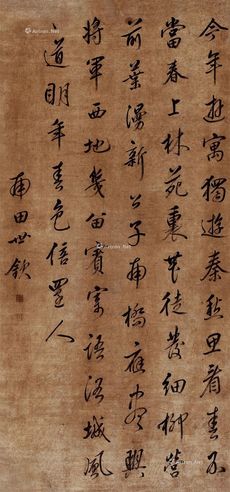 今年游寓獨遊秦愁思看春不
當春上林苑裏花徒發細柳營
前葉漫新公子南橋應盡興
將軍西地幾留賓寄語洛城風
道明年春色倍還人
莆田世欽